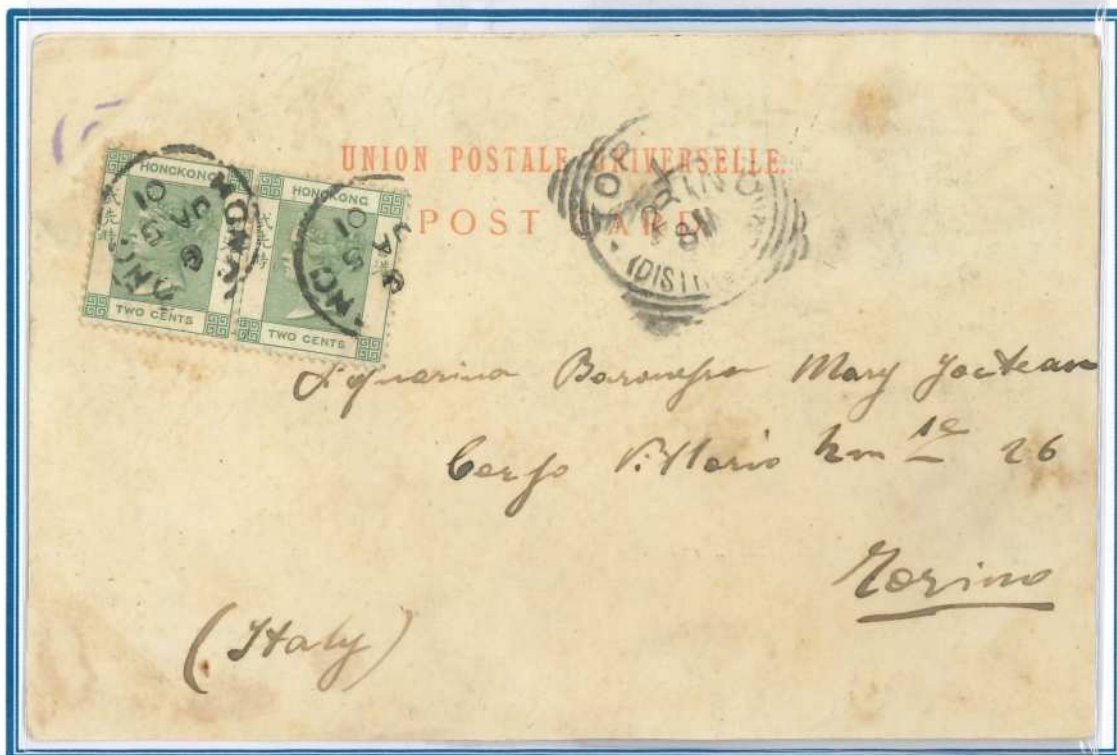 UNION POSTALE UNIVERSELLE.
POST CARD
HONGKONG
貳先時
TWO CENTS
HONGKONG
貳先時
TWO CENTS
HONG
JA 5
01
JA 5
01
TORINO
(DIST
Baronessa Mary Jocteau
Corso Vittorio Em le 26
Torino
(Italy)